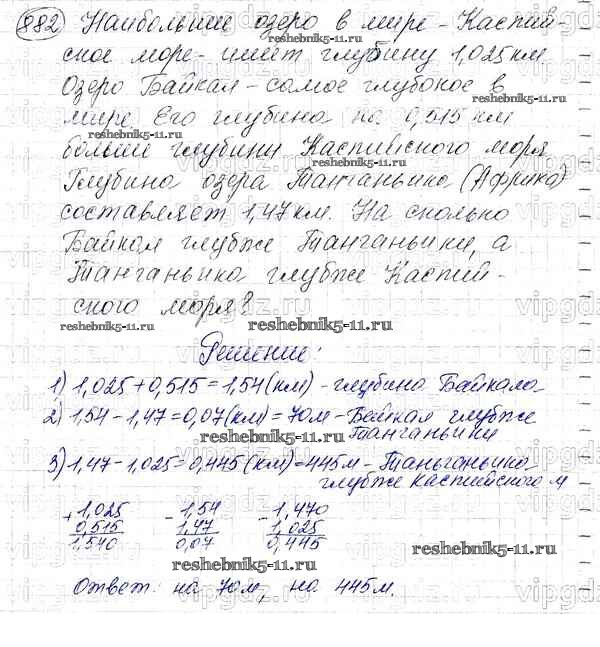 882 Наибольшее озеро в мире - Каспий-
ское море - имеет глубину 1,025 км.
Озеро Байкал - самое глубокое в
мире. Его глубина на 0,515 км
reshebnik5-11.ru
больше глубины Каспийского моря.
reshebnik5-11.ru
Глубина озера Танганьика (Африка)
составляет 1,47 км. На сколько
Байкал глубже Танганьики, а
Танганьика глубже Каспий-
ского моря?
reshebnik5-11.ru
reshebnik5-11.ru
Решение:
1) 1,025 + 0,515 = 1,54 (км) - глубина Байкала
2) 1,54 - 1,47 = 0,07 (км) = 70 м - Байкал глубже
Танганьики
reshebnik5-11.ru
3) 1,47 - 1,025 = 0,445 (км) = 445 м - Таньганьика
глубже Каспийского м
+ 1,025 - 1,54 - 1,470
0,515 1,47 1,025
1,540 0,07 0,445
reshebnik5-11.ru
Ответ: на 70 м, на 445 м.
vipgdz.ru